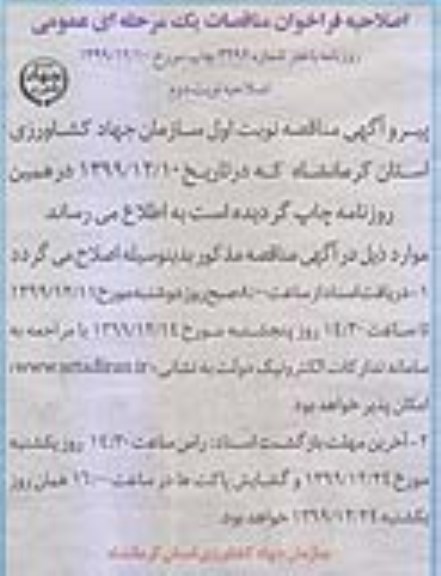 اصلاحیه فراخوان مناقصات یک مرحله ای عمومی
روزنامه باختر شماره ۳۲۹۶ چاپ مورخ ۱۳۹۹/۱۲/۱۰
اصلاحیه نوبت دوم
جهاد
پیرو آگهی مناقصه نوبت اول سازمان جهاد کشاورزی
استان کرمانشاه که در تاریخ ۱۳۹۹/۱۲/۱۰ در همین
روزنامه چاپ گردیده است به اطلاع می رساند
موارد ذیل در آگهی مناقصه مذکور بدینوسیله اصلاح می گردد
۱- دریافت اسناد از ساعت ۸:۰۰ صبح روز دوشنبه مورخ ۱۳۹۹/۱۲/۱۱
تا ساعت ۱۴:۳۰ روز پنجشنبه مورخ ۱۳۹۹/۱۲/۱۴ با مراجعه به
سامانه تدارکات الکترونیک دولت به نشانی (www.setadiran.ir)
امکان پذیر خواهد بود
۲- آخرین مهلت بازگشت اسناد: راس ساعت ۱۴:۳۰ روز یکشنبه
مورخ ۱۳۹۹/۱۲/۲۴ و گشایش پاکت ها در ساعت ۱۶:۰۰ همان روز
یکشنبه ۱۳۹۹/۱۲/۲۴ خواهد بود.
سازمان جهاد کشاورزی استان کرمانشاه